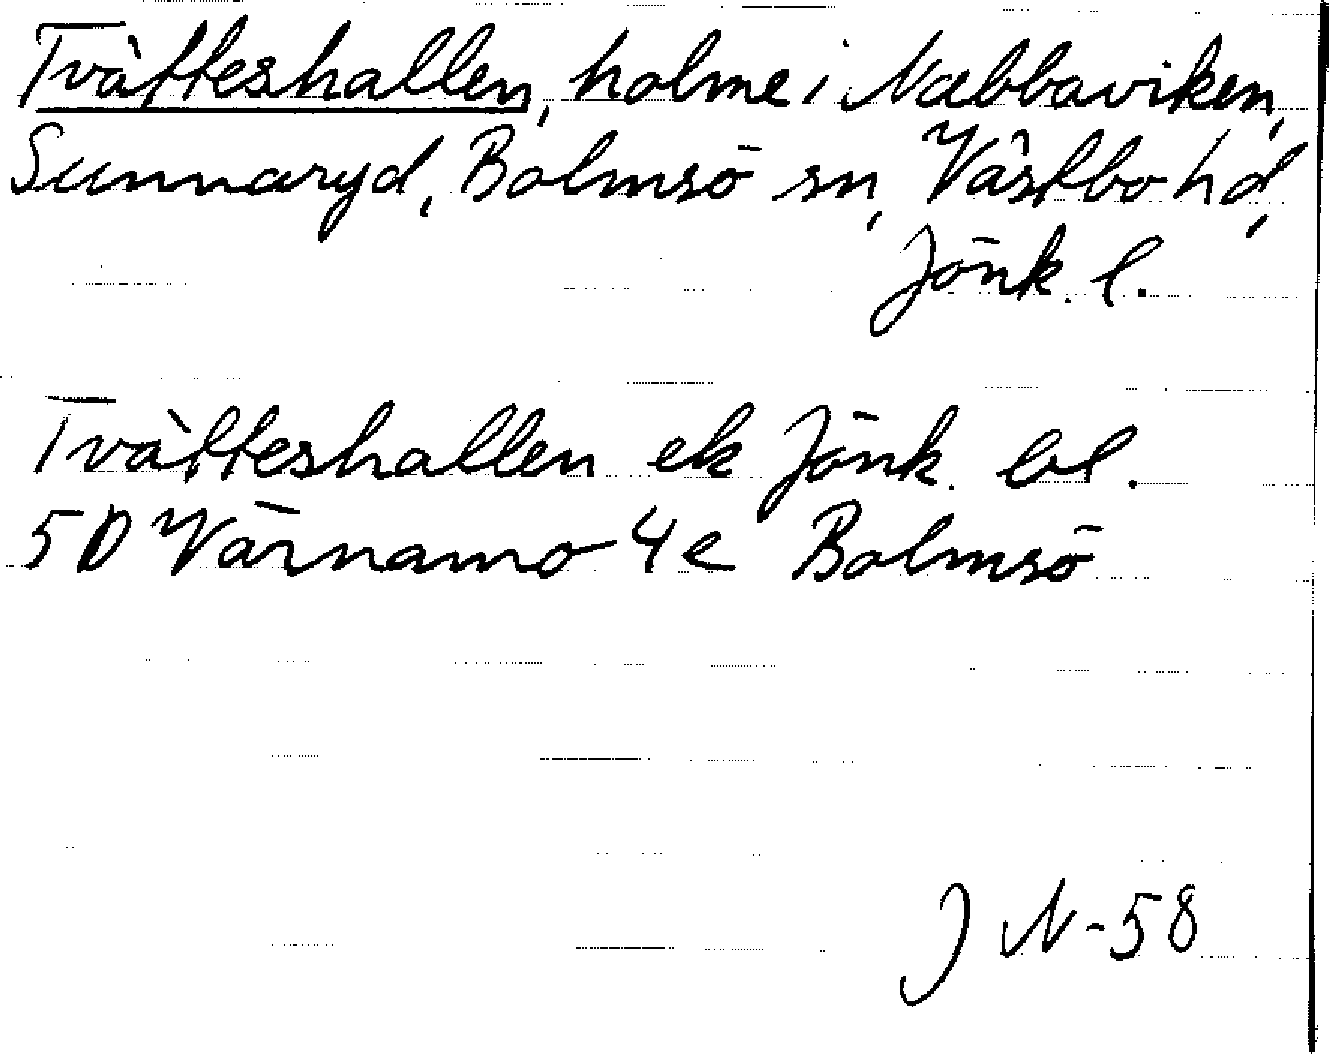 Tvätteshallen, holme i Nabbaviken,
Sunnaryd, Bolmsö sn, Västbo hd,
Jönk. l.
Tvätteshallen ek Jönk. bl.
5D Värnamo 4e Bolmsö
J N-58